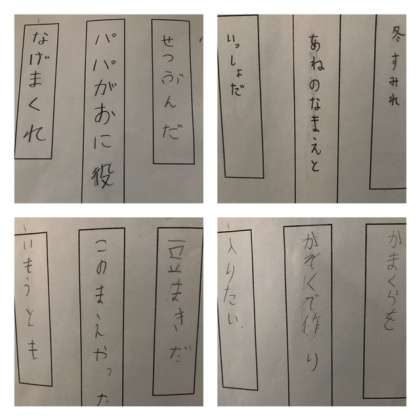 せつぶんだ
パパがおに役
なげまくれ
冬すみれ
あねのなまえと
いっしょだ
豆まきだ
このまえやった
いもうとも
かまくらを
かぞくで作り
入りたい